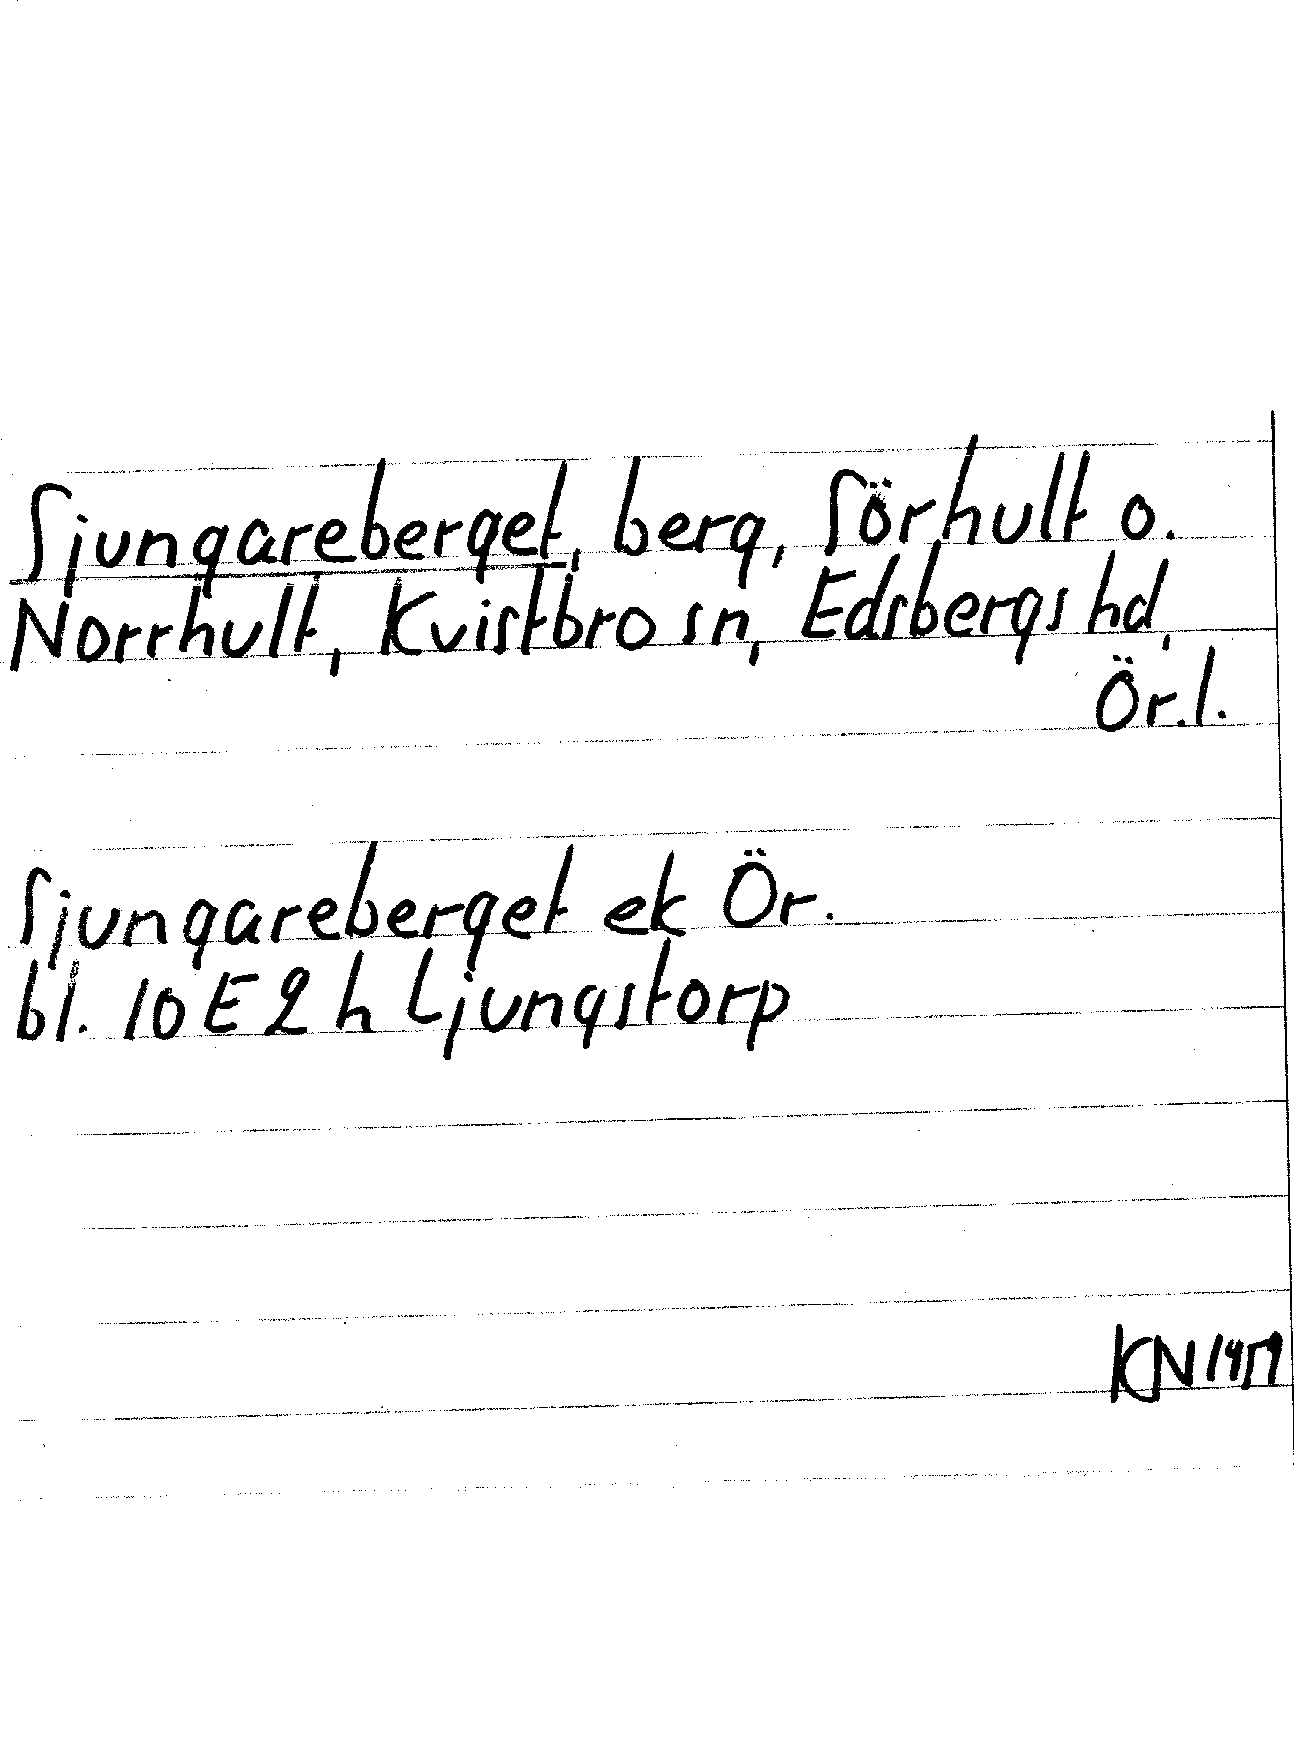 Sjungareberget, berg, Sörhult o.
Norrhult, Kvistbro sn, Edsbergs hd,
Ör.l.
Sjungareberget ek Ör.
bl. 10 E 2 h Ljungstorp
KN